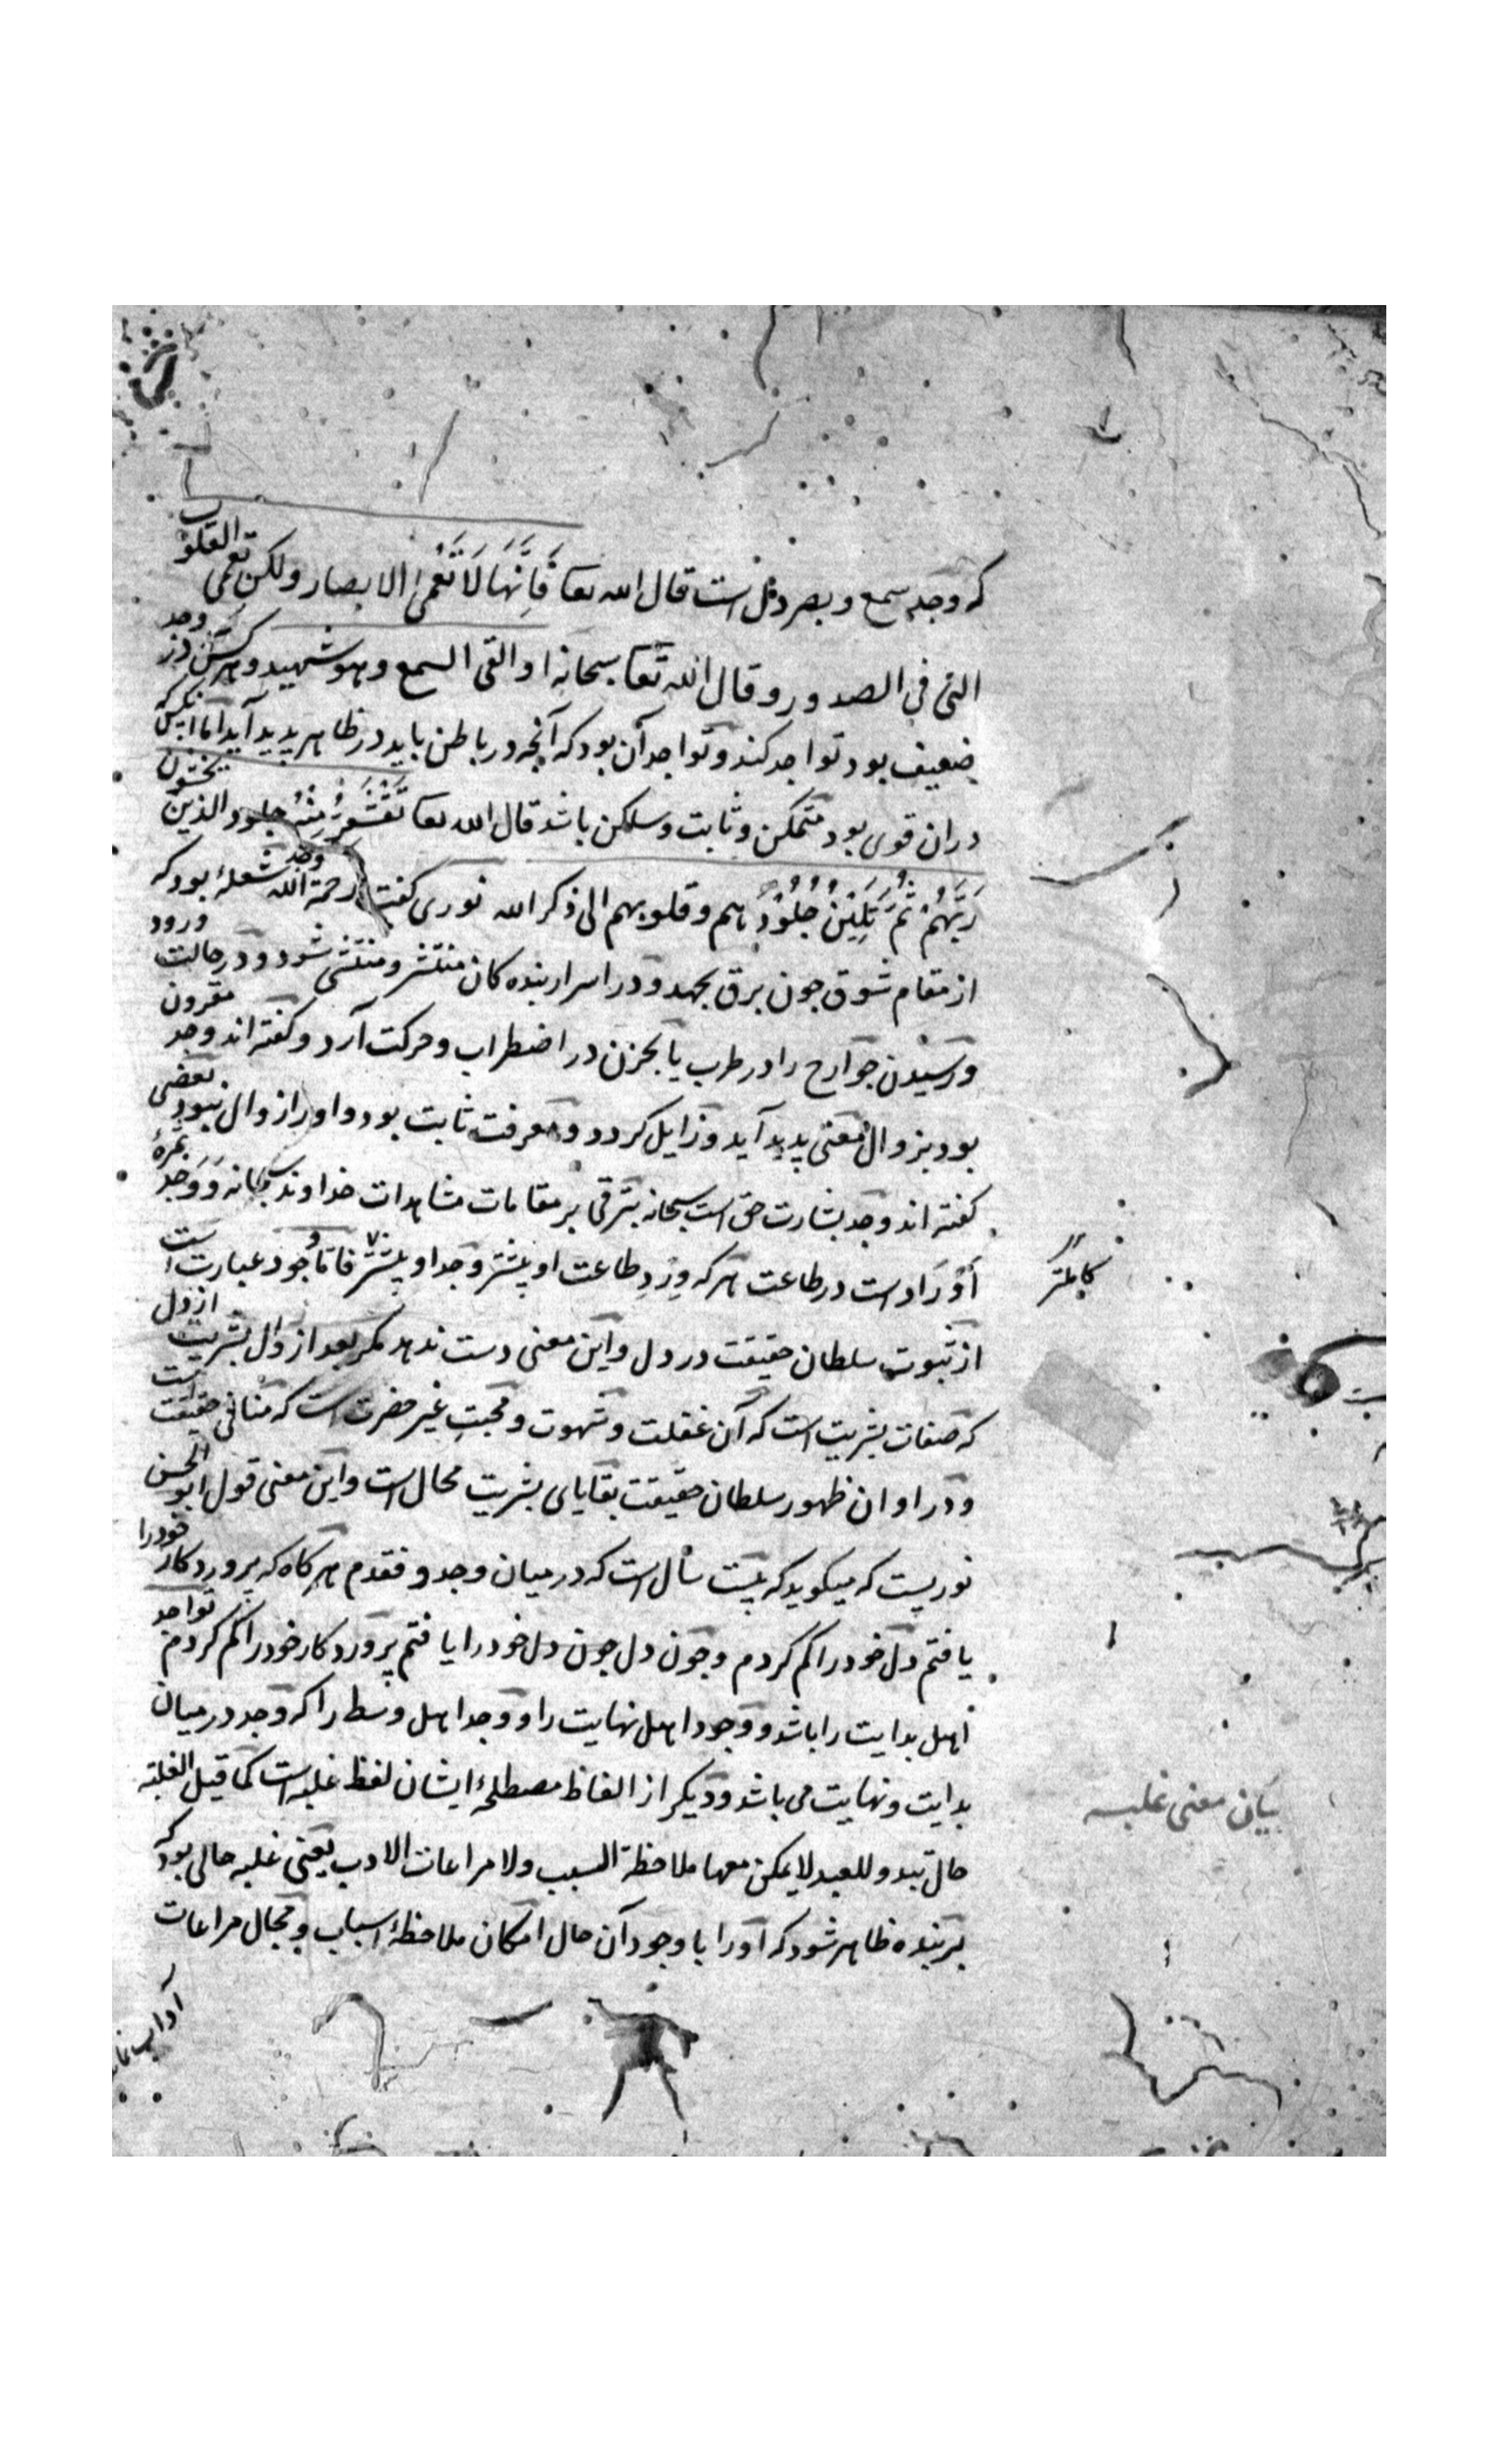 که وجد سمع و بصر دل است قال الله تعا فَاِنَّهَا لَا تَعْمَی الابصار ولکن تعمی القلوب
التی فی الصدور و قال الله تعا سبحانه او القی السمع و هو شهید و هر کس در وجد
ضعیف بود تواجد کند و تواجد آن بود که آنچه در باطن یابد در ظاهر پدید آید اما آنکس که
دران قوی بود متمکن و ثابت و ساکن باشد قال الله تعا تَقْشَعِرُّ مِنْهُ جلود الذین یخشون
رَبَّهُمْ ثُمَّ تَلِیْنُ جُلُوْدُ هم و قلوبهم الی ذکر الله نوری گفت رحمة الله وجد شعلهٔ بود که
از مقام شوق چون برق بجهد و در اسرار بنده کان منتشر و منتشی شود و در حالت ورود
و رسیدن جوارح را در طرب یا بحزن در اضطراب و حرکت آرد و گفته اند وجد مقرون
بود بزوال معنی پدید آید و زایل کردد و معرفت ثابت بود و او را زوال نبود بعضی
گفته اند وجد بشارت حق است سبحانه بترقی بر مقامات مشاهدات خداوند سبحانه و وجد ثمرهٔ
اَوْرَاد است در طاعت هر که وِرْدِ طاعت او بیشتر وجد او بیشتر فاما وجود عبارت است
از ثبوت سلطان حقیقت در دل و این معنی دست ندهد مگر بعد از زوال بشریت از دل
که صفات بشریت است که آن غفلت و شهوت و محبتِ غیر حضرت است که منافی حقیقت است
و در اوان ظهور سلطان حقیقت بقایای بشریت محال است و این معنی قول ابو الحسن
نوریست که میگوید که بیست سال است که در میان وجد و فقدم هر گاه که پروردگار خود را
یافتم دل خود را گم کردم و چون دل چون دل خود را یافتم پروردگار خود را گم کردم تواجد
اهل بدایت را باشد و وجود اهل نهایت را و وجد اهل وسط را که وجد در میان
بدایت و نهایت می باشد و دیگر از الفاظ مصطلحهٔ ایشان لفظ غلبه است کما قیل الغلبة
حال تبدو للعبد لا یمکن معها ملاحظة السبب ولا مراعات الادب یعنی غلبه حالی بود که
بر بنده ظاهر شود که او را با وجود آن حال امکان ملاحظهٔ اسباب و مجال مراعات
کاملتر
بیان معنی غلبه
آداب